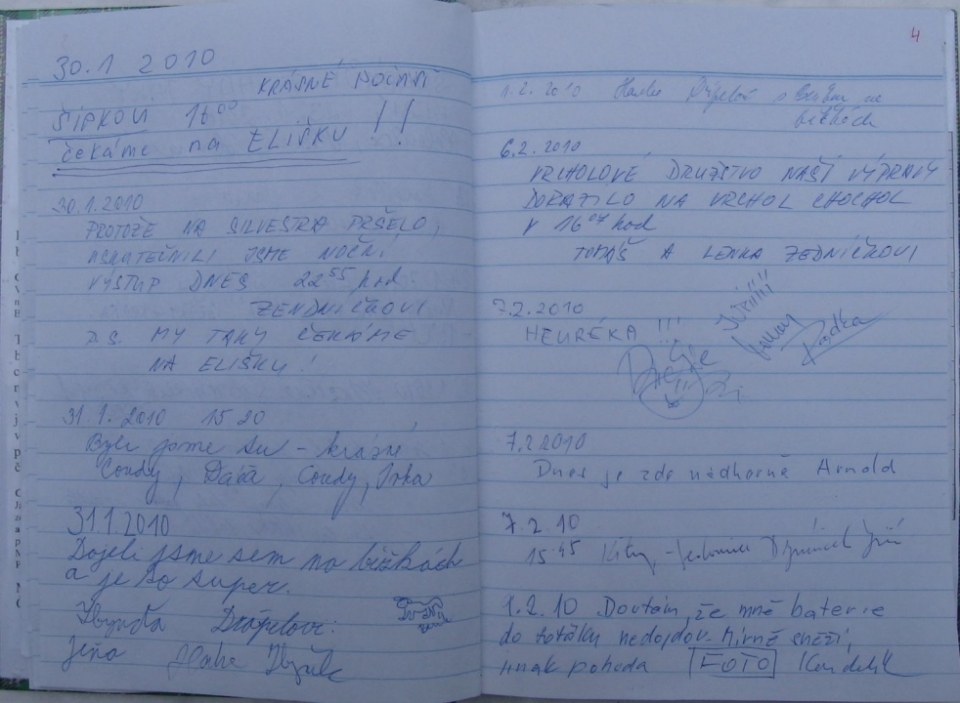 30.1 2010
KRÁSNÉ POČASÍ
ŠÍPKOVI 16⁰⁰
čekáme na ELIŠKU !!
30.1.2010
PROTOŽE NA SILVESTRA PRŠELO,
USKUTEČNILI JSME NOČNÍ
VÝSTUP DNES 22⁵⁵ hod.
ZENDNÍČKOVI
P.S. MY TAKY ČEKÁME
NA ELIŠKU!
31.1.2010 15 20
Byli jsme tu - krásné
Coudy, Dáša, Coudy, Jirka
31.1.2010
Dojeli jsme sem na běžkách
a je to super.
Zbyněk Drápelovi:
Jena
4
1.2. 2010 na
běžkách
6.2.2010
VRCHOLOVÉ DRUŽSTVO NAŠÍ VÝPRAVY
DORAZILO NA VRCHOL CHOCHOL
V 16⁰⁷ hod
TOMÁŠ A LENKA ZEDNÍČKOVI
7.2.2010
HEURÉKA !!!
Radka
7.2.2010
Dnes je zde nádherně Arnold
7.2.10
15:45
1.2.10 Doufám, že mně baterie
do foťáku nedojdou. Mírně sněží,
jinak pohoda FOTO